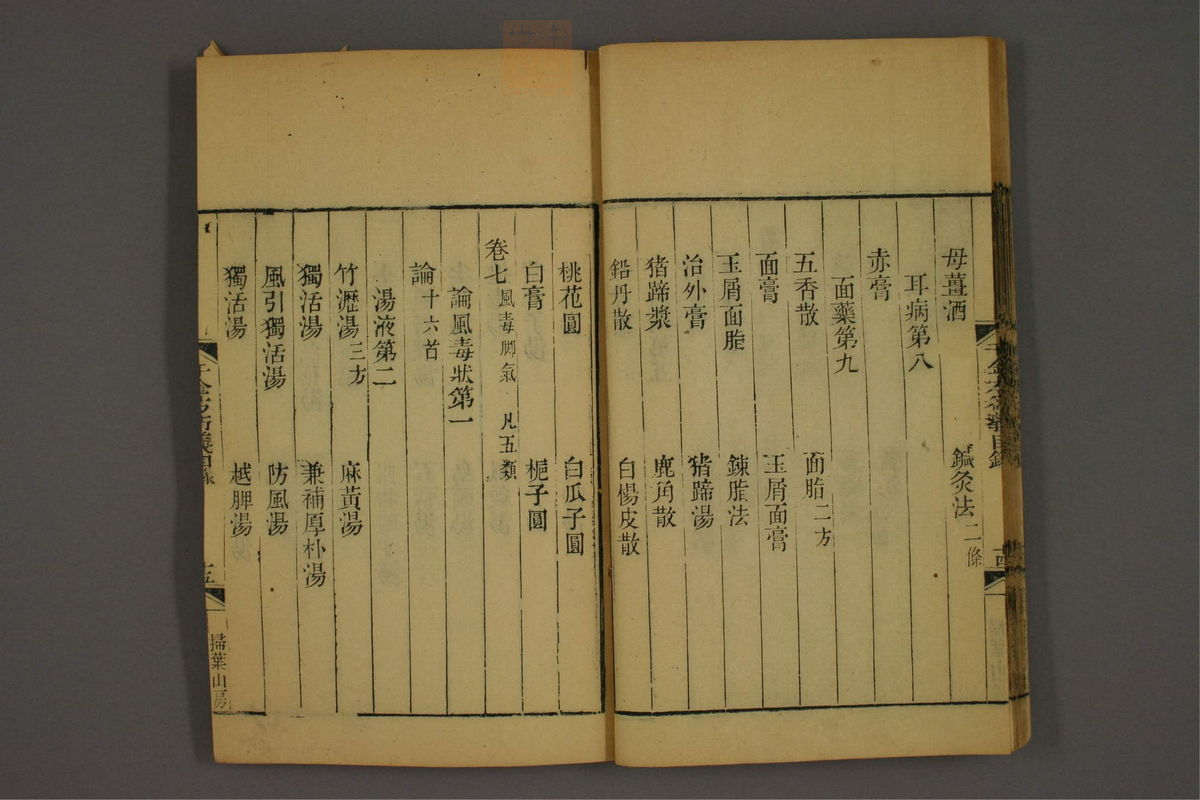 母薑酒　鍼灸法二條
耳病第八
赤膏
面藥第九
五香散　面脂二方
面膏　玉屑面膏
玉屑面脂　鍊脂法
治外膏　猪蹄湯
猪蹄漿　鹿角散
鉛丹散　白楊皮散
桃花圓　白瓜子圓
白膏　梔子圓
卷七風毒脚氣　凡五類
論風毒狀第一
論十六首
湯液第二
竹瀝湯三方　麻黃湯
獨活湯　兼補厚朴湯
風引獨活湯　防風湯
獨活湯　越脾湯
十五
掃葉山房